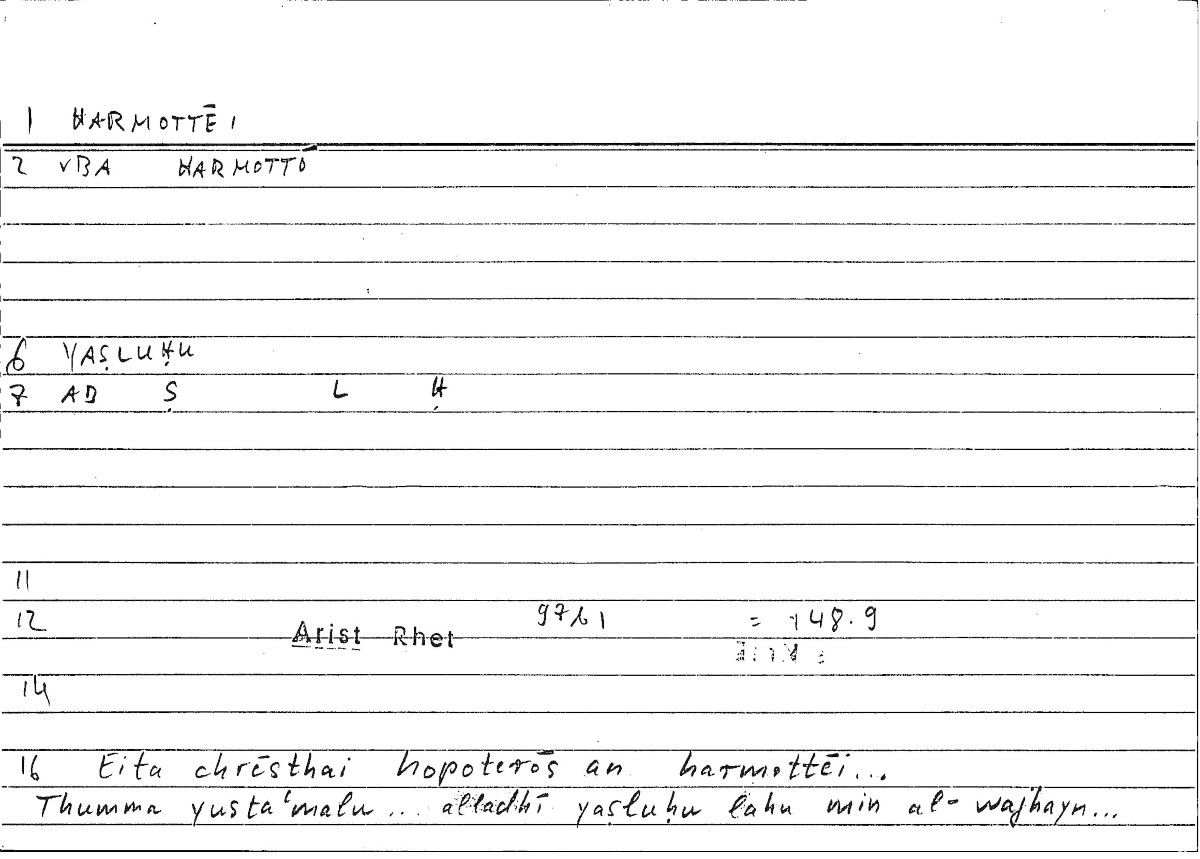 1 HARMOTTĒI
2 VBA HARMOTTŌ
6 YAṢLUḤU
7 AD Ṣ L Ḥ
11
12 Arist Rhet 97b1 = 148.9
14
16 Eita chrēsthai hopoterōs an harmottēi...
Thumma yustaʿmalu... alladhī yaṣluḥu lahu min al-wajhayn...